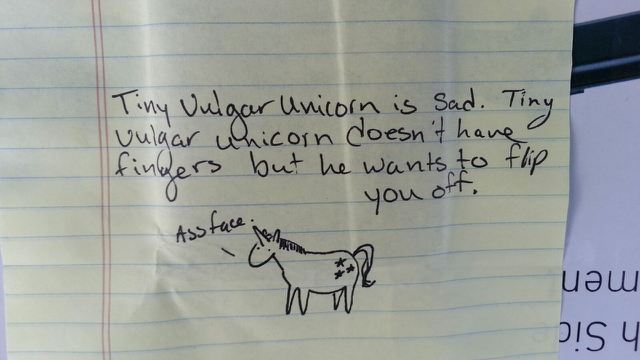 Tiny Vulgar Unicorn is Sad. Tiny
vulgar unicorn doesn't have
fingers but he wants to flip
you off.
Assface.
men
h Sid